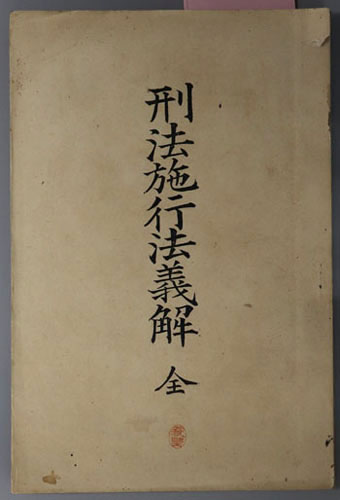 刑法施行法義解 全